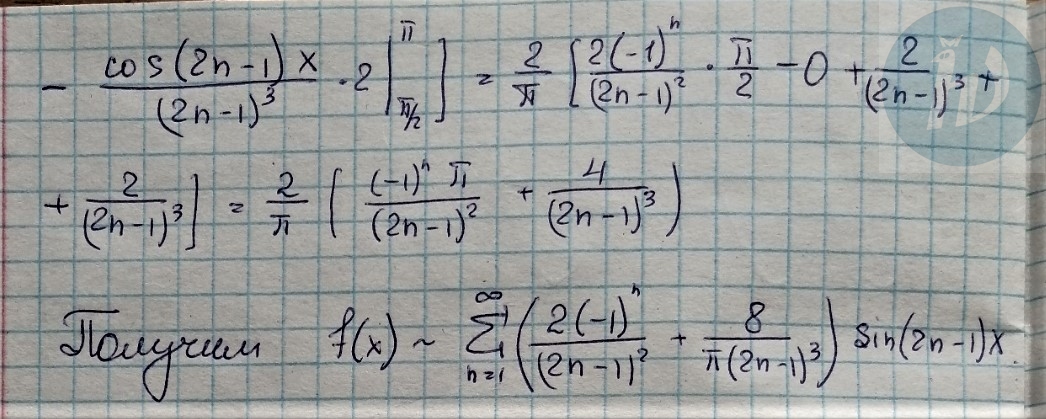 - cos(2n-1)x / (2n-1)^3 · 2 |_{π/2}^{π} ] = 2/π [ 2(-1)^n / (2n-1)^2 · π/2 - 0 + 2/(2n-1)^3 +
+ 2/(2n-1)^3 ] = 2/π [ (-1)^n π / (2n-1)^2 + 4/(2n-1)^3 )
Получим f(x) ~ ∑_{n=1}^{∞} ( 2(-1)^n / (2n-1)^2 + 8 / π(2n-1)^3 ) sin(2n-1)x.